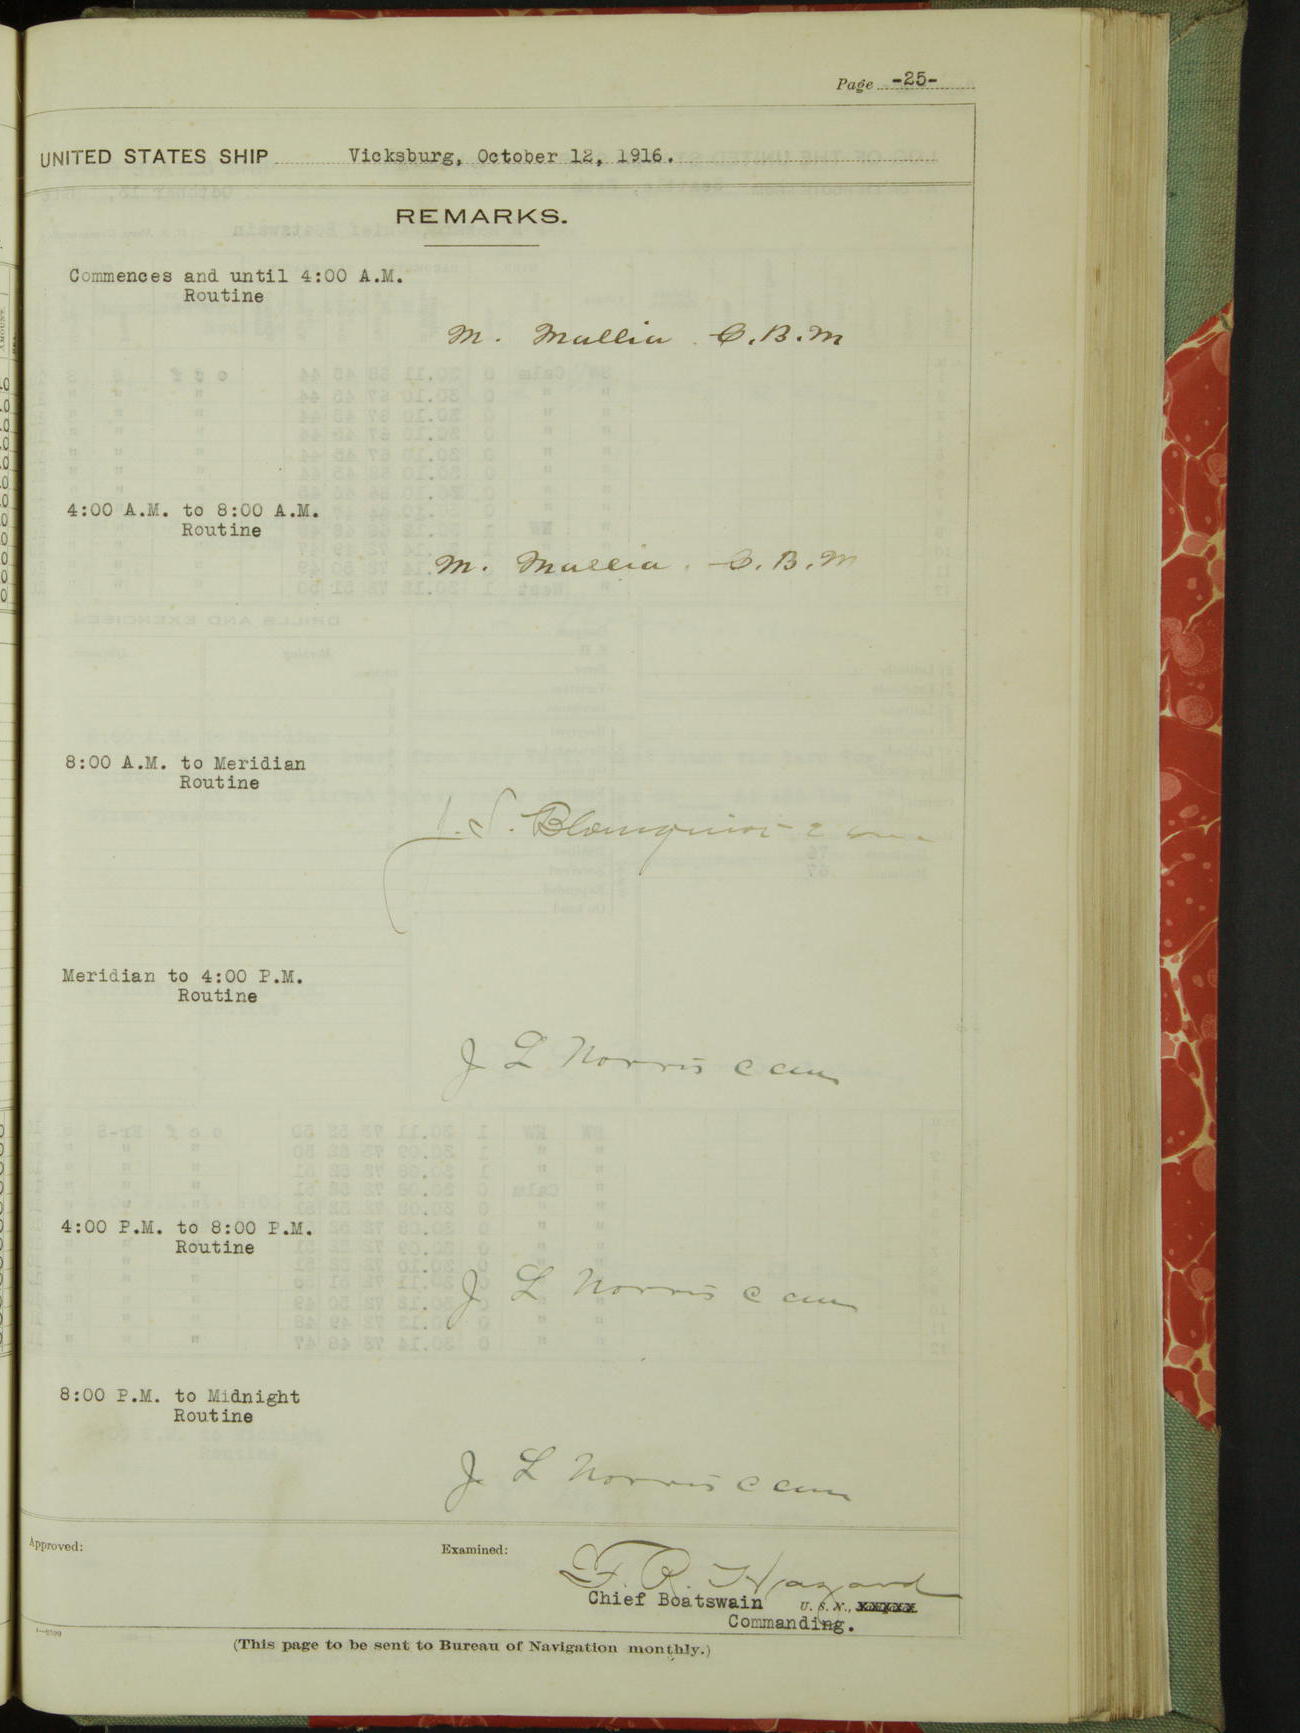 Page -25-
UNITED STATES SHIP Vicksburg, October 12, 1916.
REMARKS.
Commences and until 4:00 A.M.
Routine
M. Mallia C.B.M
4:00 A.M. to 8:00 A.M.
Routine
M. Mallia C.B.M
8:00 A.M. to Meridian
Routine
J. S. Blomquist
Meridian to 4:00 P.M.
Routine
J L Norris
4:00 P.M. to 8:00 P.M.
Routine
J L Norris
8:00 P.M. to Midnight
Routine
J L Norris
Approved:
Examined:
F. R. Hazard
Chief Boatswain U. S. N.,
Commanding.
(This page to be sent to Bureau of Navigation monthly.)